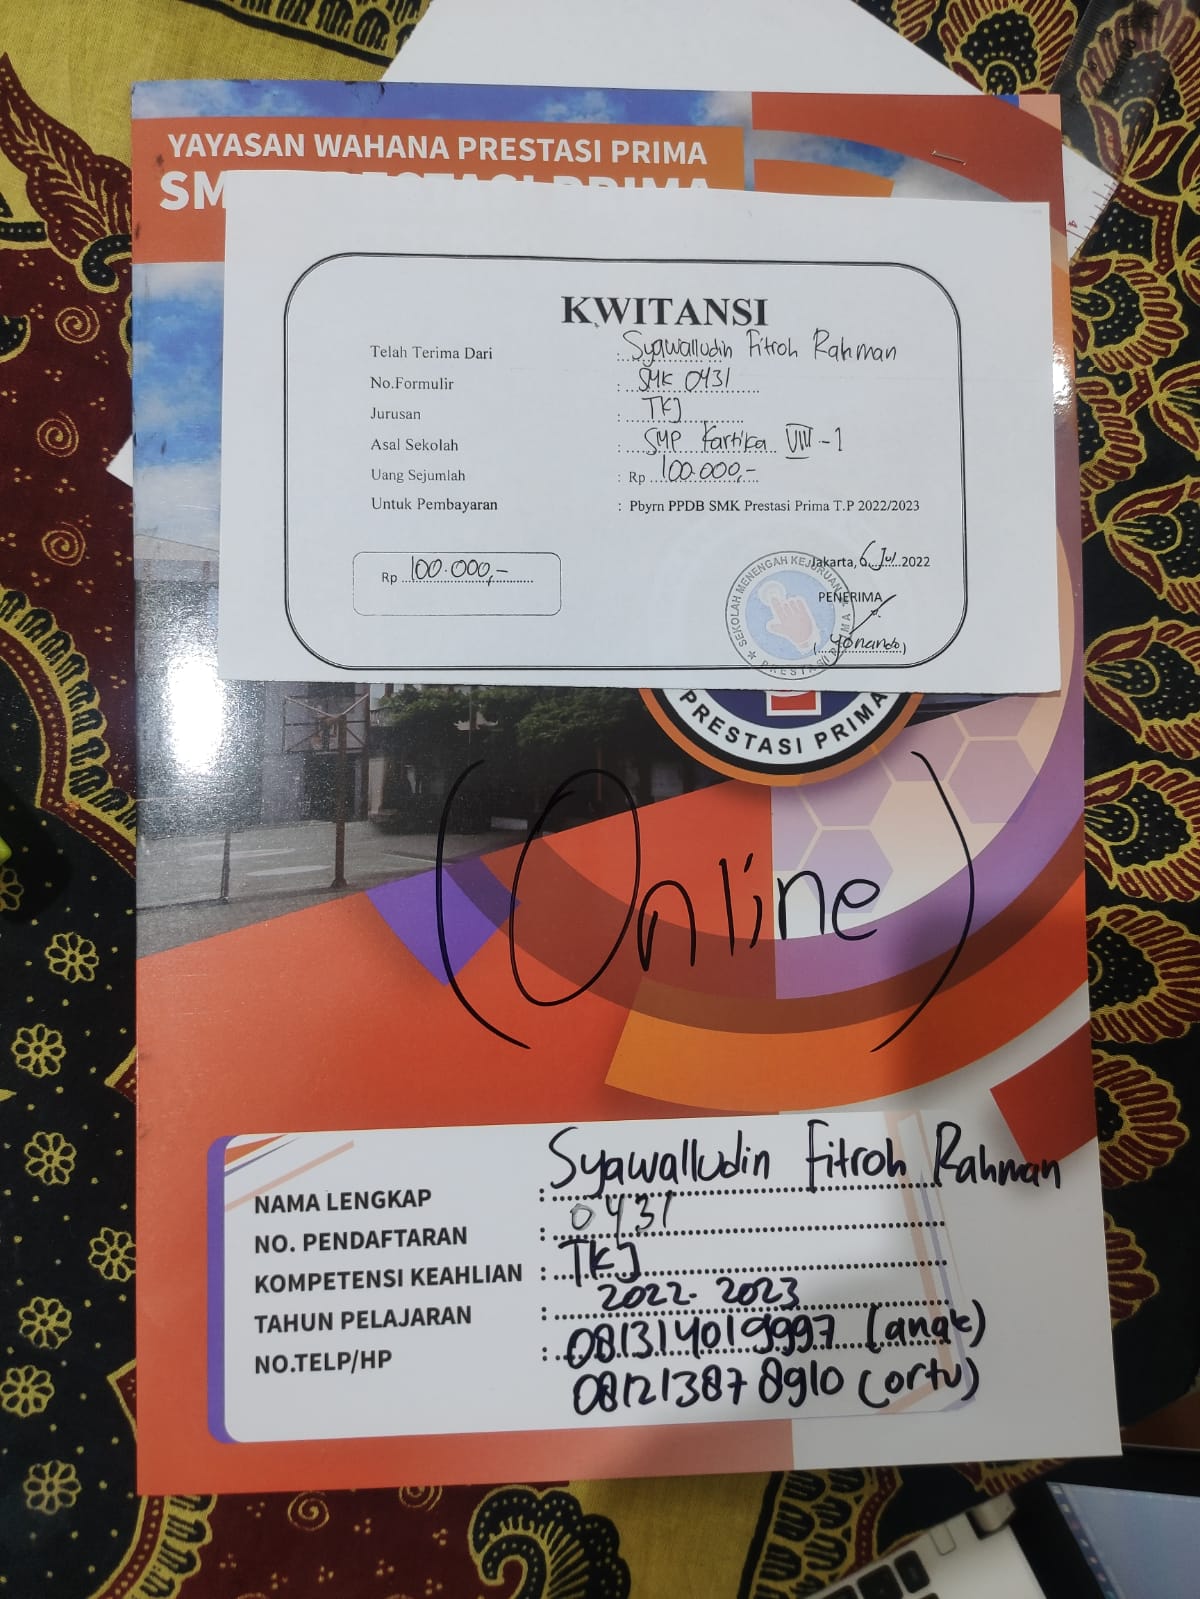 YAYASAN WAHANA PRESTASI PRIMA
SMK PRESTASI PRIMA
KWITANSI
Telah Terima Dari : Syawalludin Fitroh Rahman
No.Formulir : SMK 0431
Jurusan : TKJ
Asal Sekolah : SMP Kartika VIII-1
Uang Sejumlah : Rp 100.000,-
Untuk Pembayaran : Pbyrn PPDB SMK Prestasi Prima T.P 2022/2023
Rp 100.000,-
Jakarta, 6 Jul 2022
PENERIMA
SEKOLAH MENENGAH KEJURUAN
PRESTASI PRIMA
(Yonando)
PRESTASI PRIMA
(Online)
NAMA LENGKAP : Syawalludin Fitroh Rahman
NO. PENDAFTARAN : 0431
KOMPETENSI KEAHLIAN : TKJ
TAHUN PELAJARAN : 2022-2023
NO.TELP/HP : 081314019997 (anak)
081213878910 (ortu)